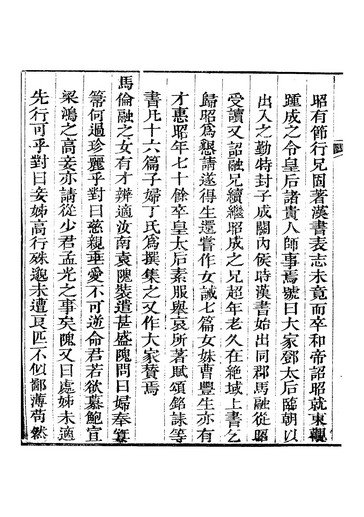 昭有節行兄固著漢書表志未竟而卒和帝詔昭就東觀
踵成之令皇后諸貴人師事焉號曰大家鄧太后臨朝以
出入之勤特封子成關內侯時漢書始出同郡馬融從昭
受讀又詔融兄續繼昭成之兄超年老久在絶域上書乞
歸昭爲懇請遂得生還嘗作女誡七篇女妹曹豐生亦有
才惠昭年七十餘卒皇太后素服舉哀所著賦頌銘誄等
書凡十六篇子婦丁氏爲撰集之又作大家贊焉
馬倫融之女有才辨適汝南袁隗裝遣甚盛隗問曰婦奉箕
箒何過珍麗乎對曰慈親垂愛不可逆命君若欲慕鮑宣
梁鴻之高妾亦請從少君孟光之事矣隗又曰處姊未適
先行可乎對曰妾姊高行殊邈未遭良匹不似鄙薄苟然